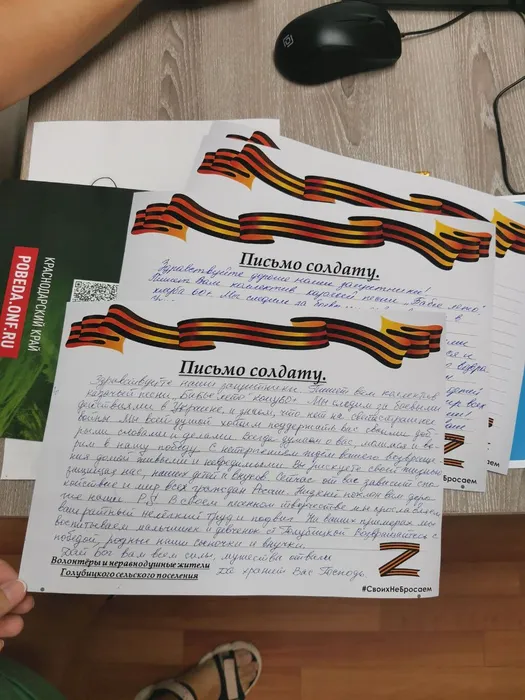 КРАСНОДАРСКИЙ КРАЙ
POBEDA.ONF.RU
Письмо солдату.
Здравствуйте дорогие наши защитнички!
Пишет Вам коллектив казачьей песни „Бабье лето"
Мы следим за
Письмо солдату.
Здравствуйте наши защитнички. Пишет Вам коллектив
казачьей песни „Бабье лето"
Мы следим за боевыми
действиями в Украине, и знаем, что нет на свете страшнее
войны. Мы всей душой хотим поддержать вас своими доб-
рыми словами и делами. Всегда думаем о вас, молимся и ве-
рим в нашу победу. С нетерпением ждём вашего возвраще-
ния домой живыми и невредимыми. Вы рискуете своей жизнью
защищая нас, наших детей и внуков. Сейчас от вас зависит спо-
койствие и мир всех граждан России. Низкий поклон вам доро-
гие наши. P.S. В своем песенном творчестве мы прославляем
ваш ратный нелёгкий труд и подвиг. На ваших примерах мы
воспитываем мальчишек и девчонок ст. Голубицкой. Возвращайтесь с
победой, родные наши сыночки и внучки.
Дай Бог вам всем силы, мужества отваги
Да хранит Вас Господь.
Волонтёры и неравнодушные жители
Голубицкого сельского поселения
Z
#СвоихНеБросаем